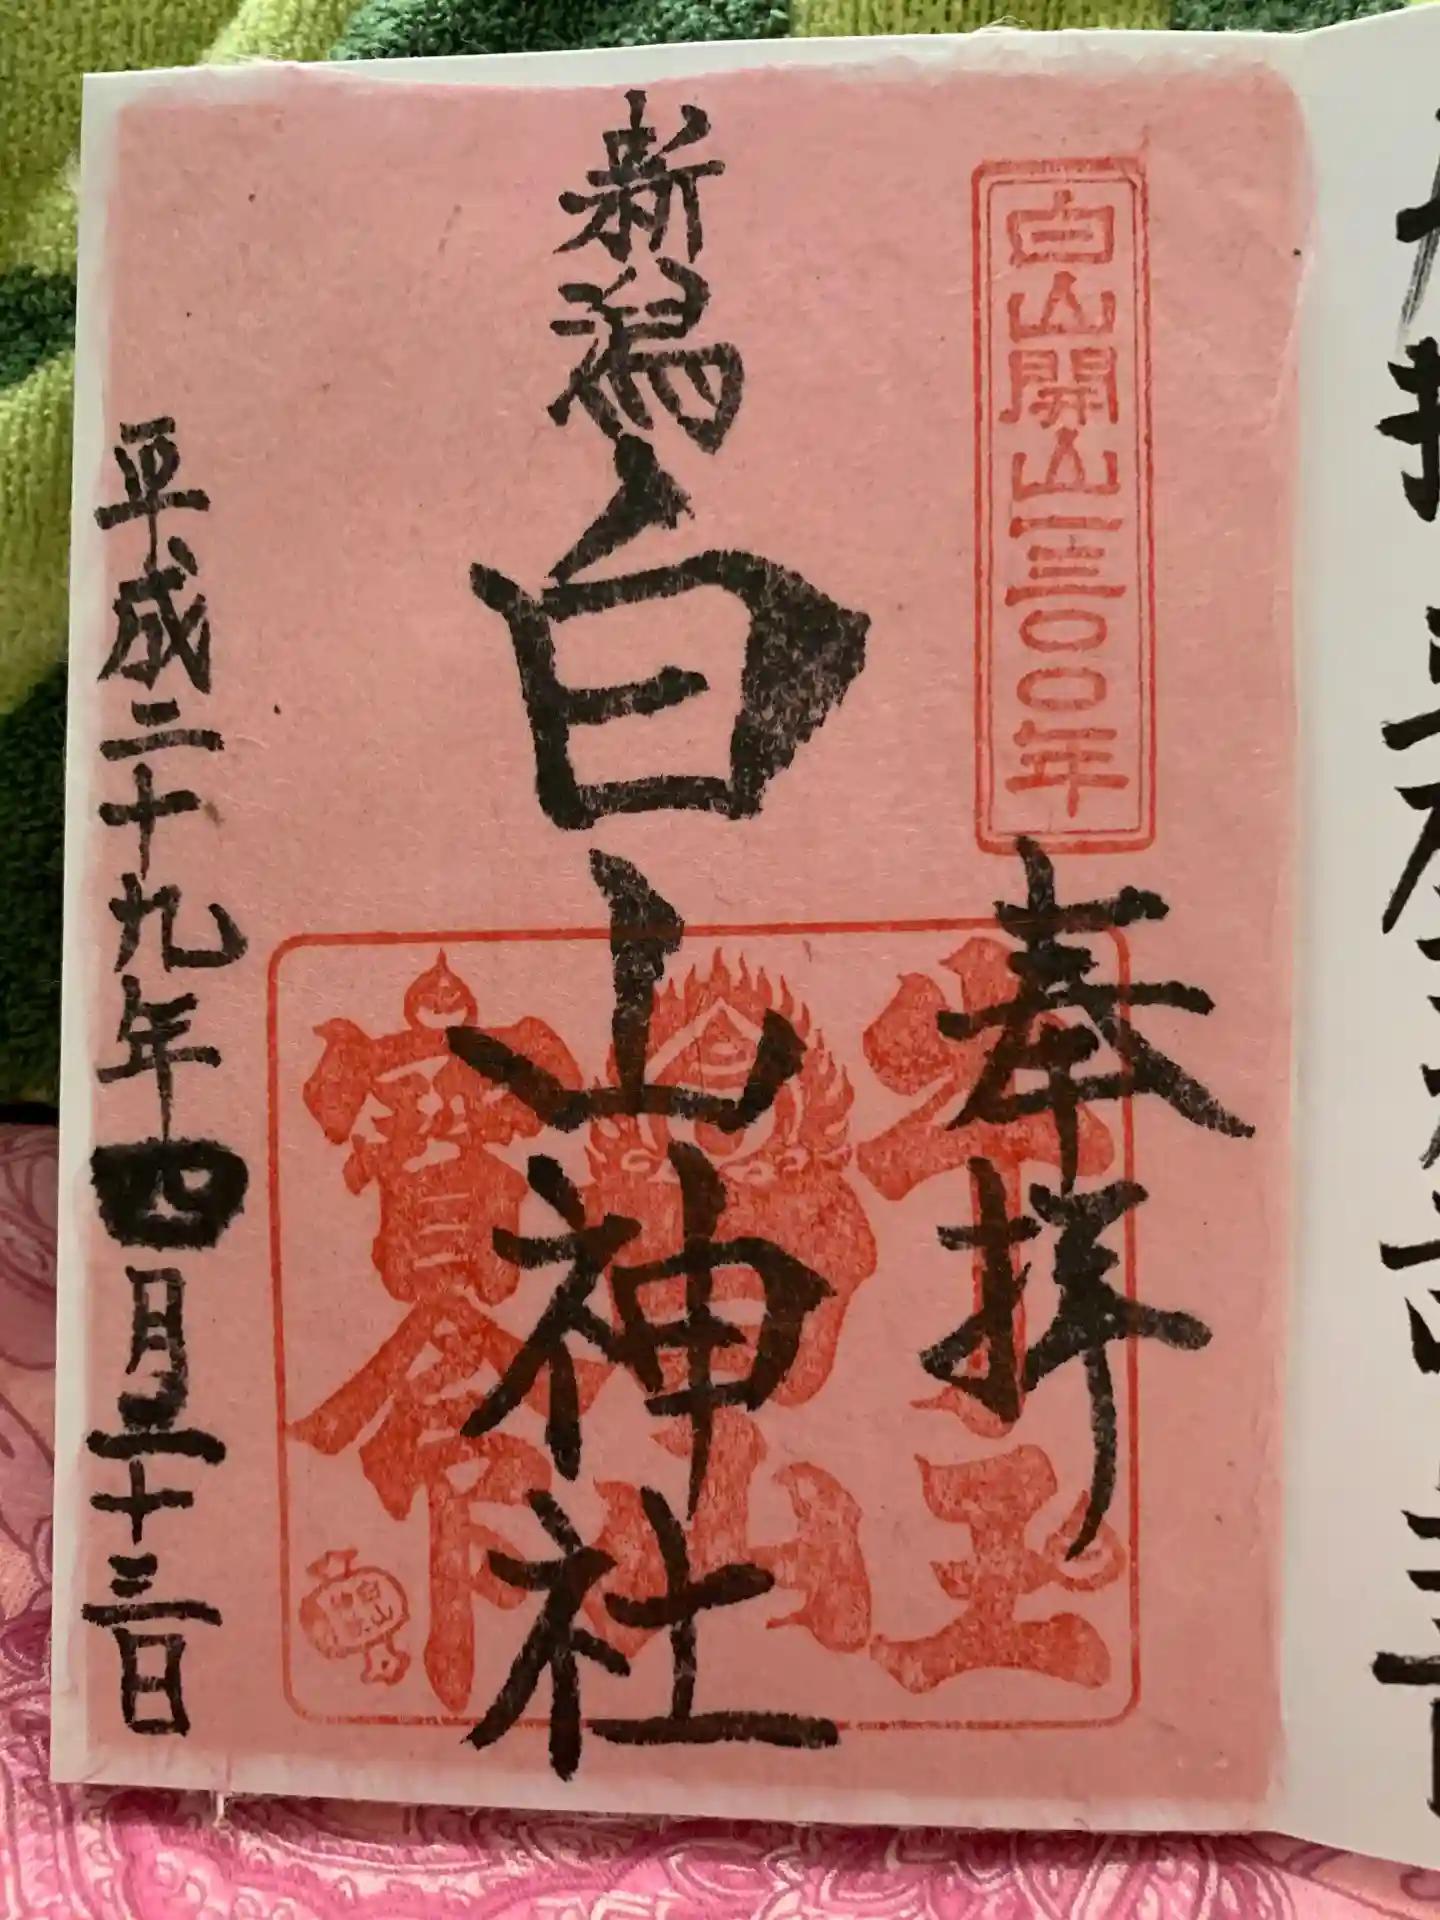 白山開山一三〇〇年
奉拝
新潟白山神社
平成二十九年四月二十三日
牛王
寶命